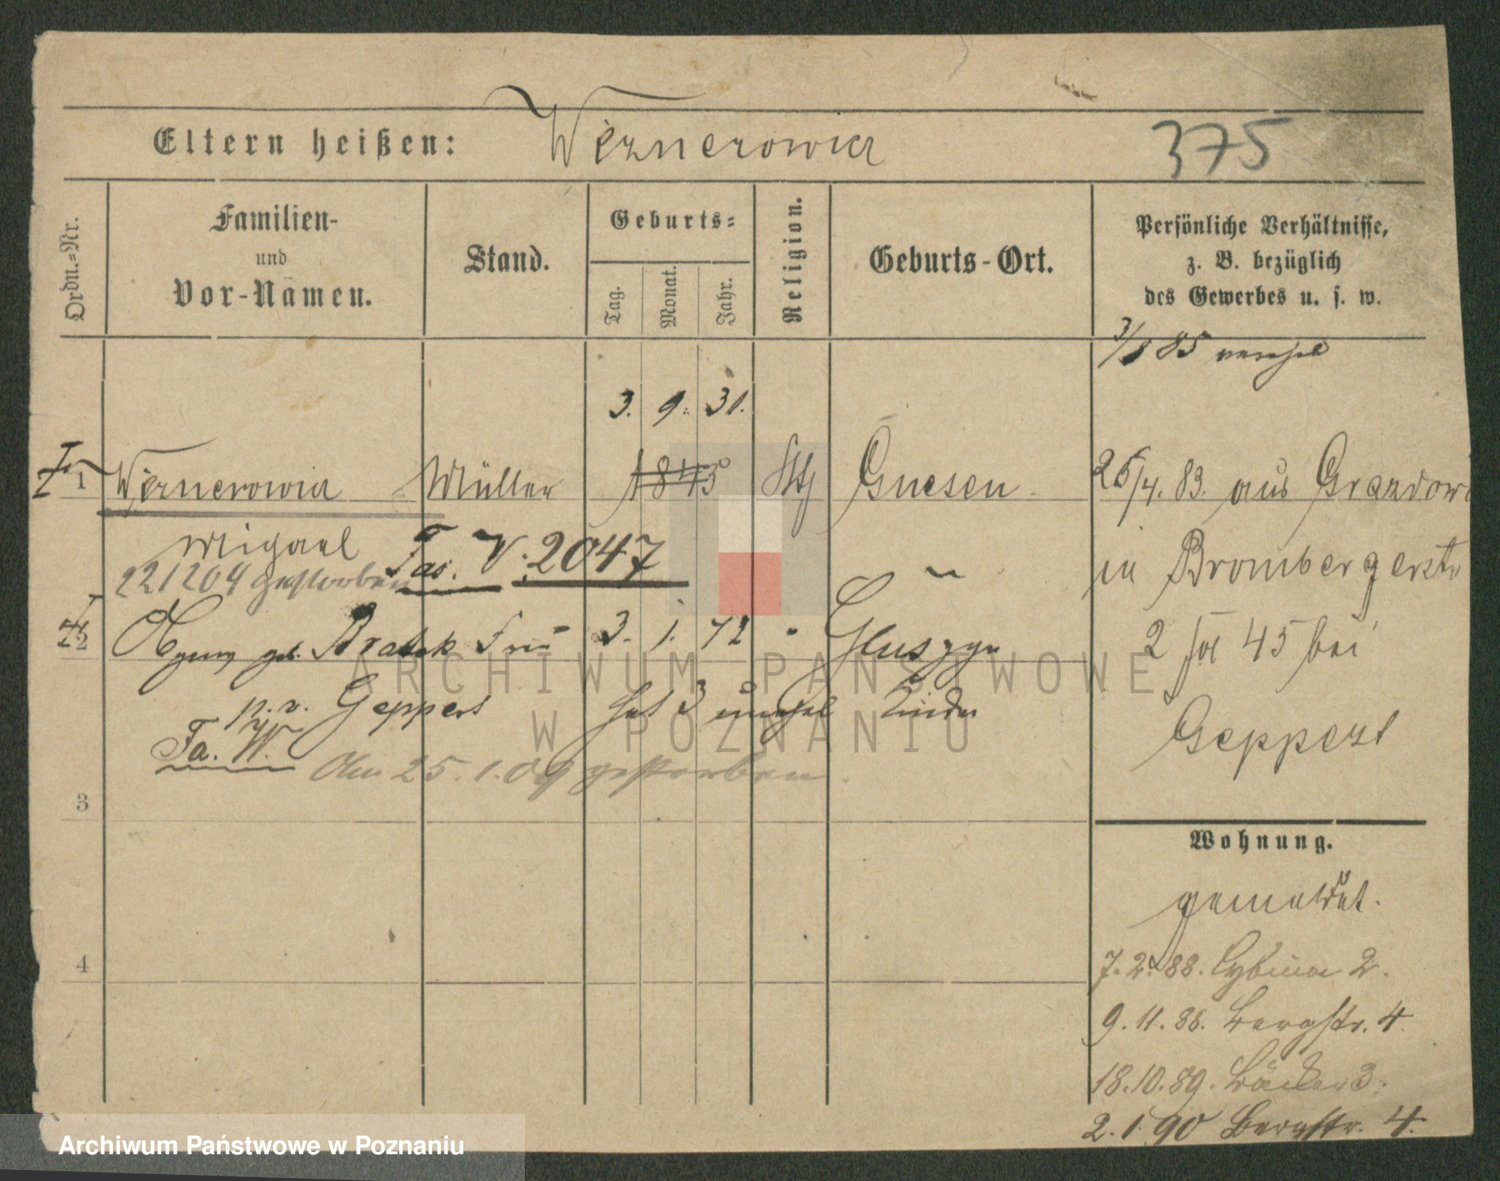 Eltern heißen: Weznerowicz
375
Ordn.=Nr.
Familien-
und
Vor-Namen.
Stand.
Geburts=
Tag.
Monat.
Jahr.
Religion.
Geburts-Ort.
Persönliche Verhältnisse,
z. B. bezüglich
des Gewerbes u. s. w.
3/8 85
3. 9. 31.
1 Müller 1845 Kth Gnesen
26/4. 83. aus
in Brombergerstr
2 bei 45
Geppert
22 12 04 gestorben Fas. V. 2047
2 geb. Bratek Frau 3. 1. 72 Gluszyn
p. v. Geppert hat 3 unehel Kinder
Fa. W.
Am 25. 1. 09 gestorben
3
Wohnung.
4
7. 2. 88. Cybina 2.
9. 11. 88. Bergstr. 4.
18. 10. 89. Bäcker 3.
2. 1. 90 Bergstr. 4.
ARCHIWUM PAŃSTWOWE
W POZNANIU
Archiwum Państwowe w Poznaniu